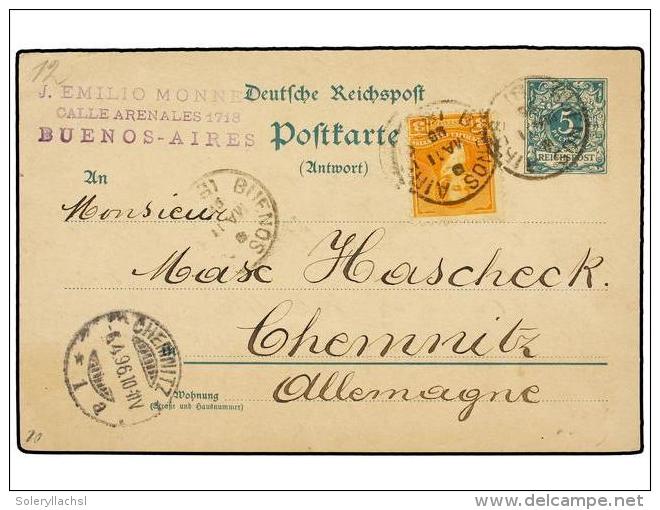 12
J. EMILIO MONNE
CALLE ARENALES 1718
BUENOS-AIRES
Deutsche Reichspost
Postkarte
(Antwort)
5
REICHSPOST
BUENOS AIR
MA 11
96
An
31 BUENOS
MA 11
Monsieur
Max Hascheck.
Chemnitz
Allemagne
CHEMNITZ
6.4.96.10-11V
* 1 a
Wohnung
(Straße und Hausnummer)
Soleryllachsl
delcampe.net